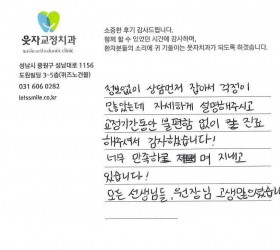 웃자교정치과
smile orthodontic clinic
성남시 중원구 성남대로 1156
도원빌딩 3~5층(퀴즈노건물)
031 606 0282
letssmile.co.kr
소중한 후기 감사드립니다.
함께 할 수 있었던 시간에 감사하며,
환자분들의 소리에 귀 기울이는 웃자치과가 되도록 하겠습니다.
정보없이 상담먼저 잡아서 걱정이
많았는데 자세하게 설명해주시고
교정기간동안 불편함 없이 잘 진료
해주셔서 감사했습니다!
너무 만족하고 며 지내고
있습니다!
모든 선생님들, 원장님 고생많으셨습니다